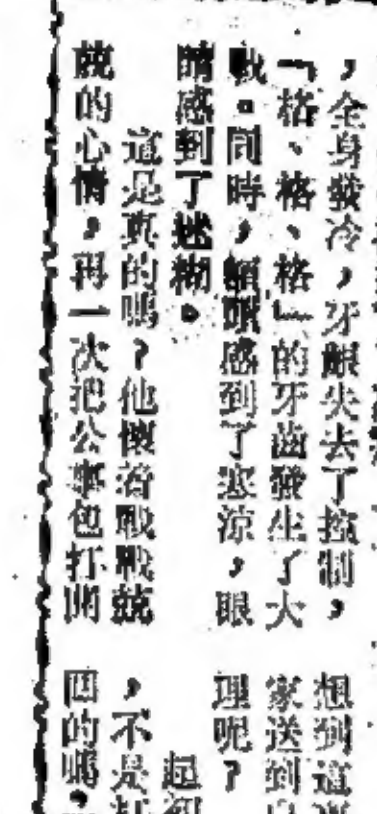 ，全身發冷，牙齦失去了控制，
「格、格、格」的牙齒發生了大
戰。同時，額頭感到了寒涼，眼
睛感到了迷糊。
這是真的嗎？他懷着戰戰兢
兢的心情，再一次把公事包打開
想到這
家送到
理呢？
起
，不是
四的嗎